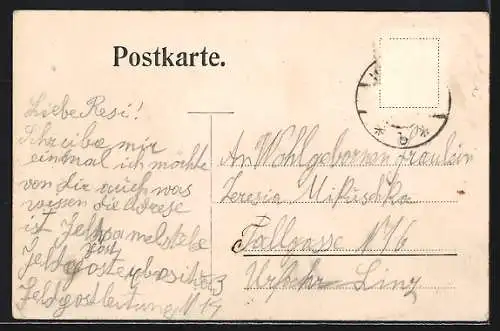 Postkarte.
Liebe Resi!
Schreibe mir
einmal ich möchte
von dir auch was
wissen die Adrese
ist Feldsamelstelle
Feldpost
Feldpostleitung N 14
An Wohlgebornen Fraulein
Teresia Mikuschka
Fallgasse N 16
Urfahr Linz
b